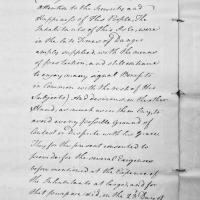 Attention to the Security and
Happiness of this People, The
Inhabitants of this Isle, were
in the late Times of Danger
amply supplied with the means
of protection, and still continue
to enjoy many equal Benefits
in Common with the rest of His
Subjects; And desirous, on the other
Hand, as much as in them lay, to
avoid every possible Ground of
Contest or Dispute with his Grace
They for the present consented to
provide for the several Exigences
before mentioned at the Expence of
the Inhabitants at large, and for
that purpose did, in the